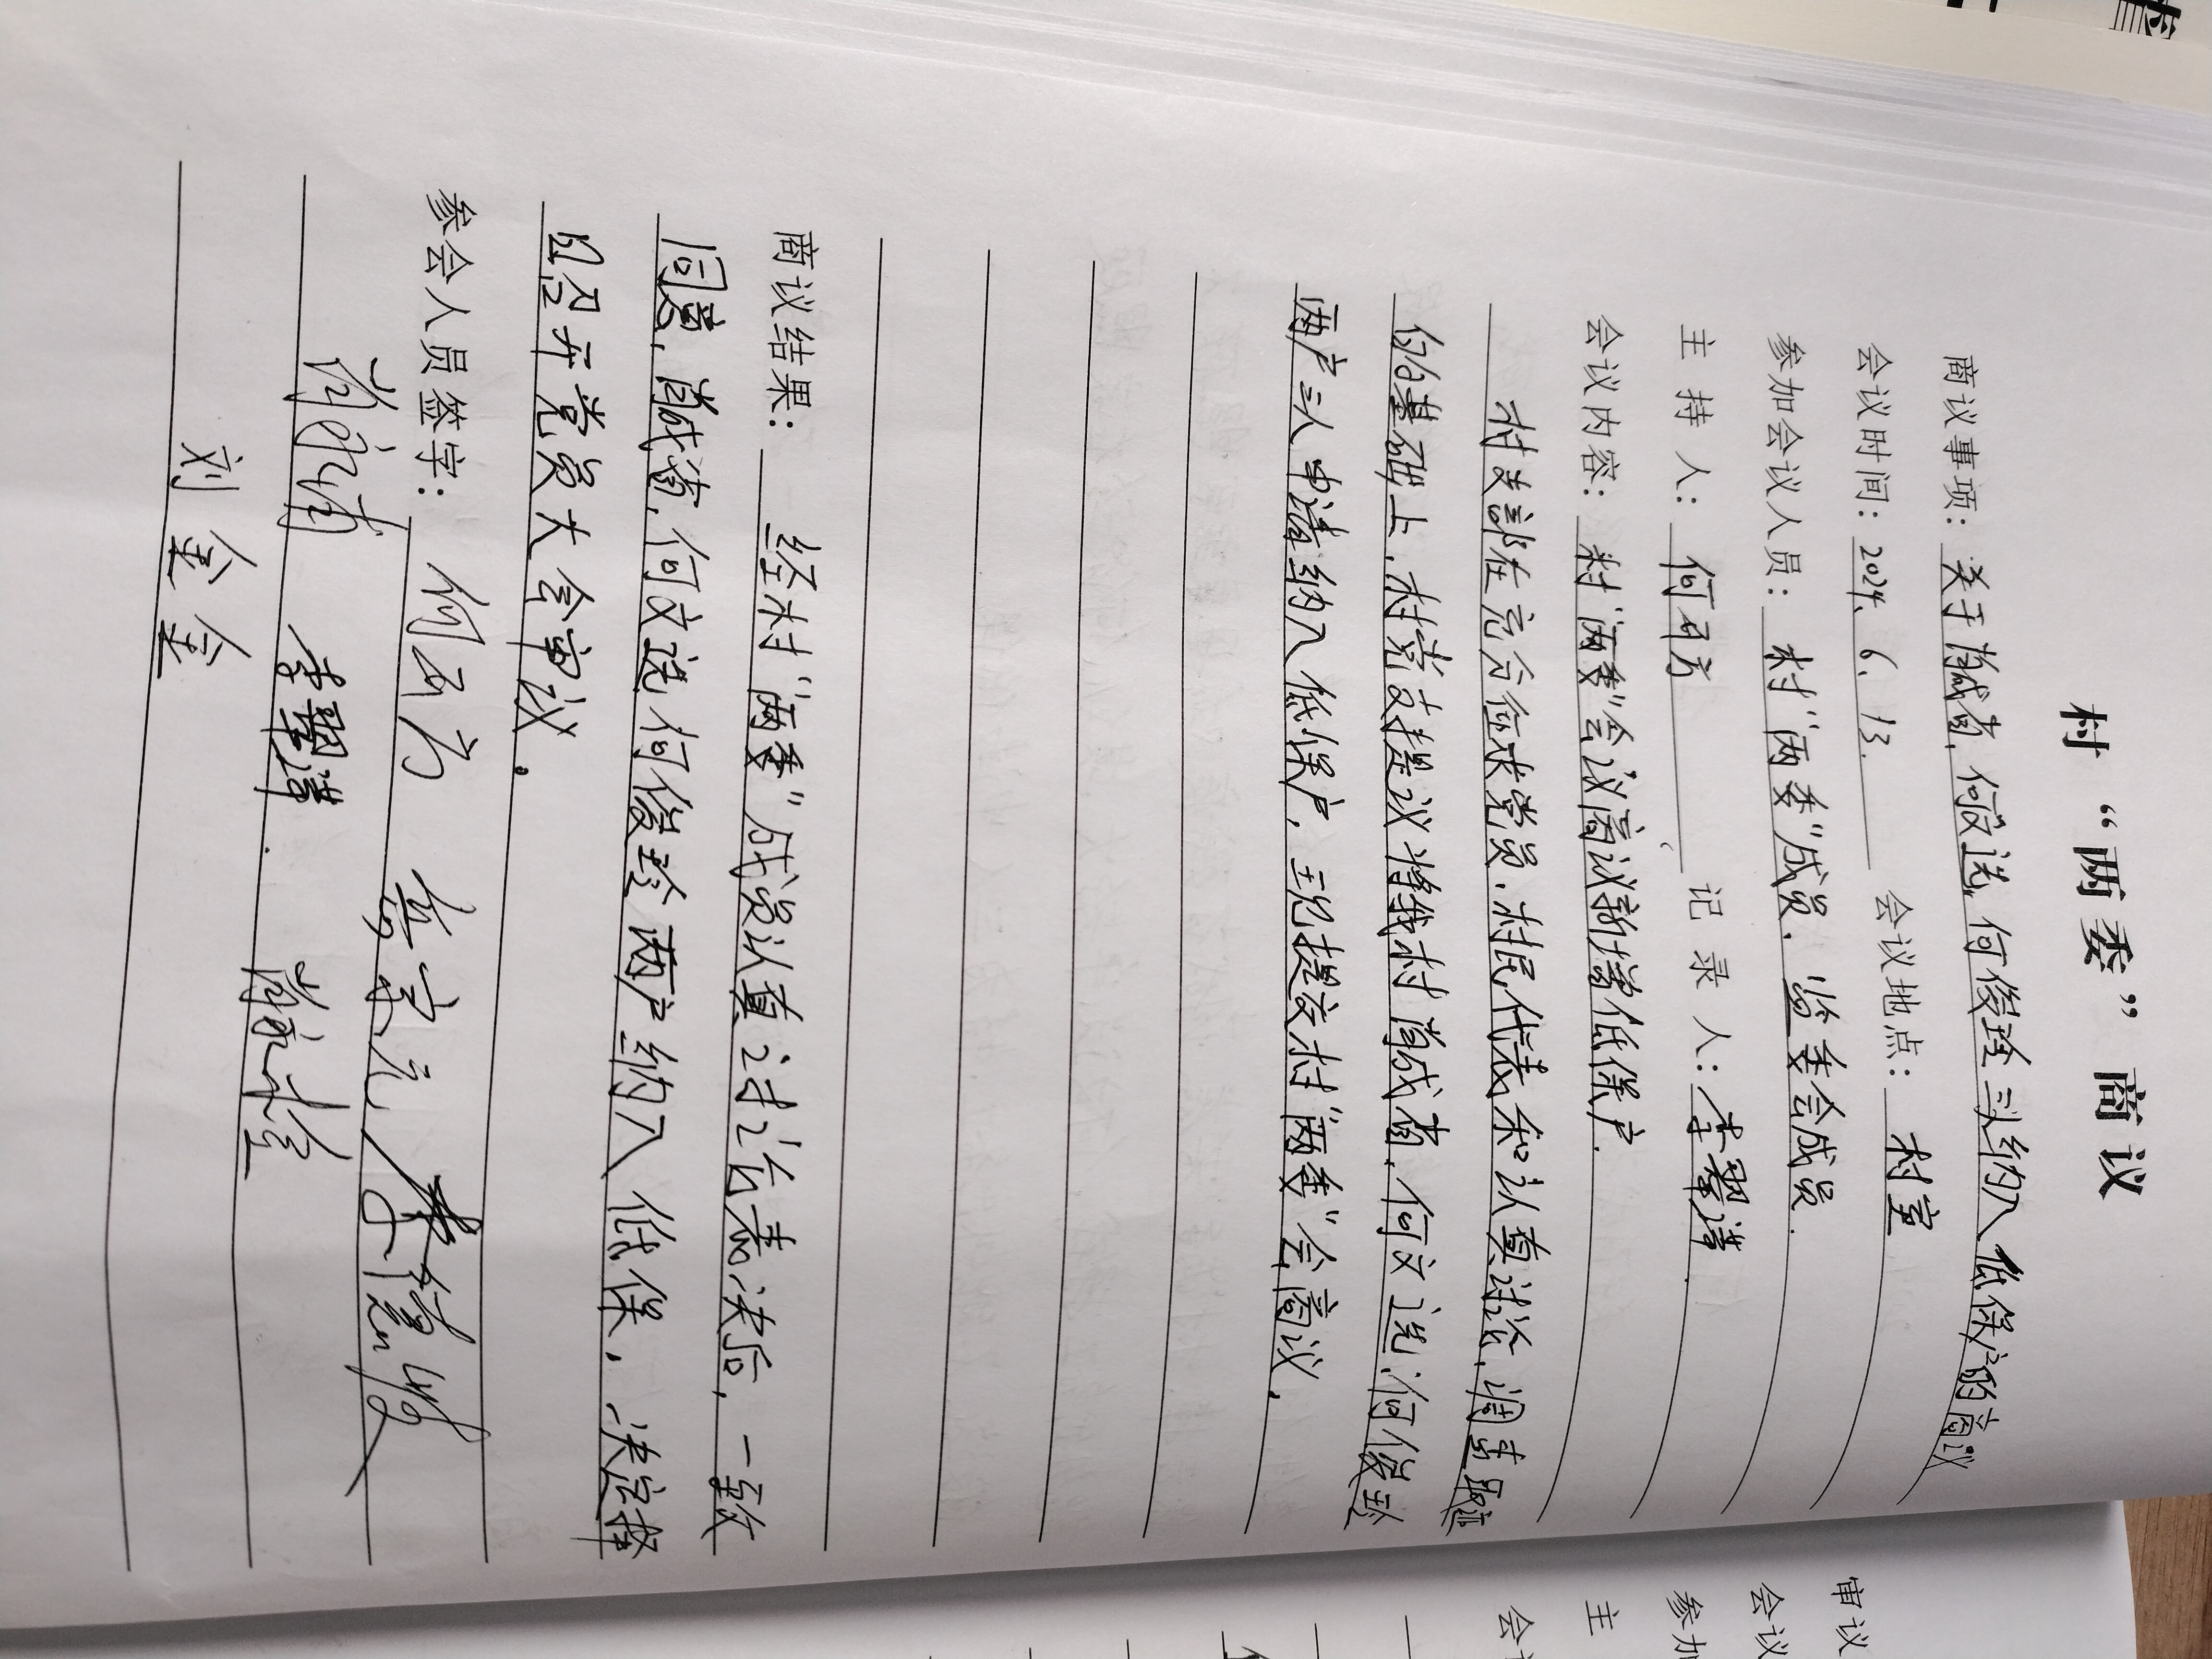 村“两委”商议
商议事项：关于肖成省，何文选，何俊玲三人纳入低保户的商议
会议时间：2024、6、13. 会议地点：村室
参加会议人员：村“两委”成员、监委会成员.
主持人：何开方 记录人：李翠萍.
会议内容：村“两委”会议商议新增低保户.
村支部在充分征求党员、村民代表和认真讨论，调查取证
的基础上，村党支提议将我村肖成省，何文选，何俊玲
两户三人申请纳入低保户，现提交村“两委”会商议。
商议结果：经村“两委”成员认真讨论表决后，一致
同意，肖成省，何文选何俊玲两户纳入低保，决定择
日召开党员大会审议。
参会人员签字：何开方 岳宗元 李德
肖永甫 李翠萍. 肖永栓
刘金金
审议
会议
参加
主
会议